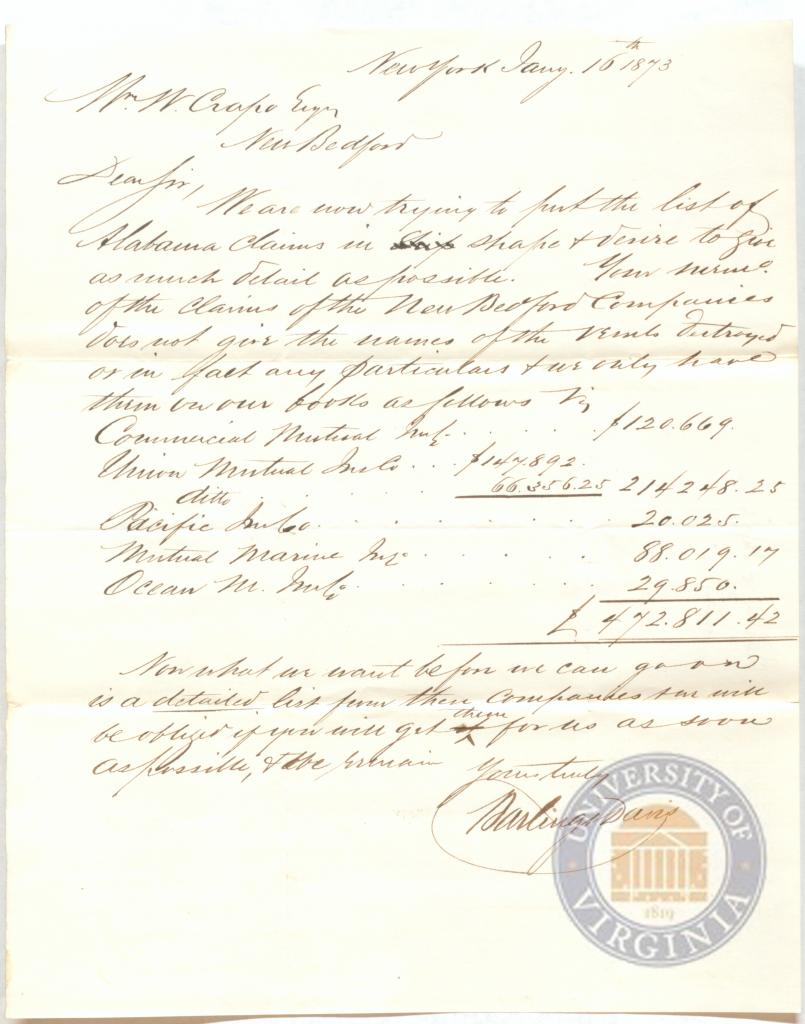 New York Jany. 16th 1873
Wm. W. Crapo Esqr
New Bedford
Dear Sir,
We are now trying to put the list of
Alabama Claims in shape & desire to give
as much detail as possible. Your memo.
of the claims of the New Bedford Companies
does not give the names of the vessels destroyed
or in fact any particulars & we only have
them on our books as follows Viz
Commercial Mutual Ins Co . . . . . . $120.669.
Union Mutual Ins Co . . . $147.892.
ditto . . . . . . 66.356.25 214248.25
Pacific Ins Co. . . . . . . . . 20.025.
Mutual Marine Ins Co . . . . . . 88.019.17
Ocean M. Ins Co . . . . . . . 29.850.
$ 472.811.42
Now what we want before we can go on
is a detailed list from these Companies & we will
be obliged if you will get them for us as soon
as possible, & we remain
Yours truly
Darling & Davis
UNIVERSITY OF
VIRGINIA
1819